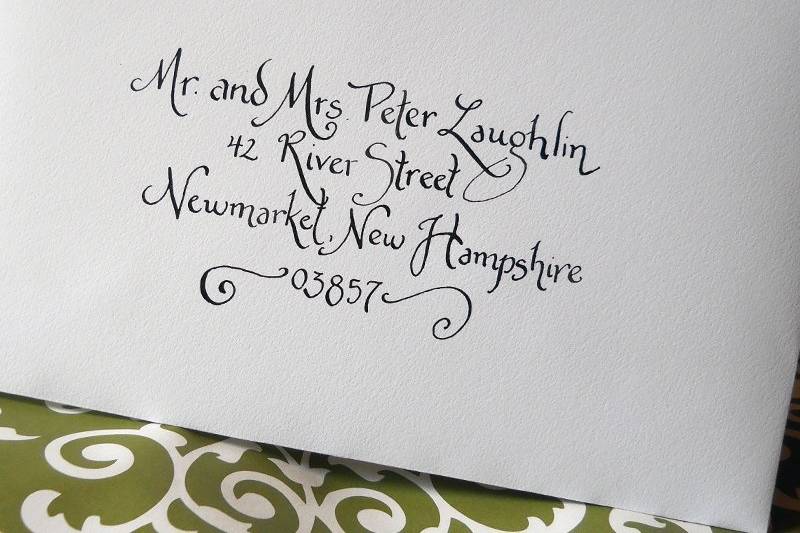 Mr. and Mrs. Peter Laughlin
42 River Street
Newmarket, New Hampshire
03857